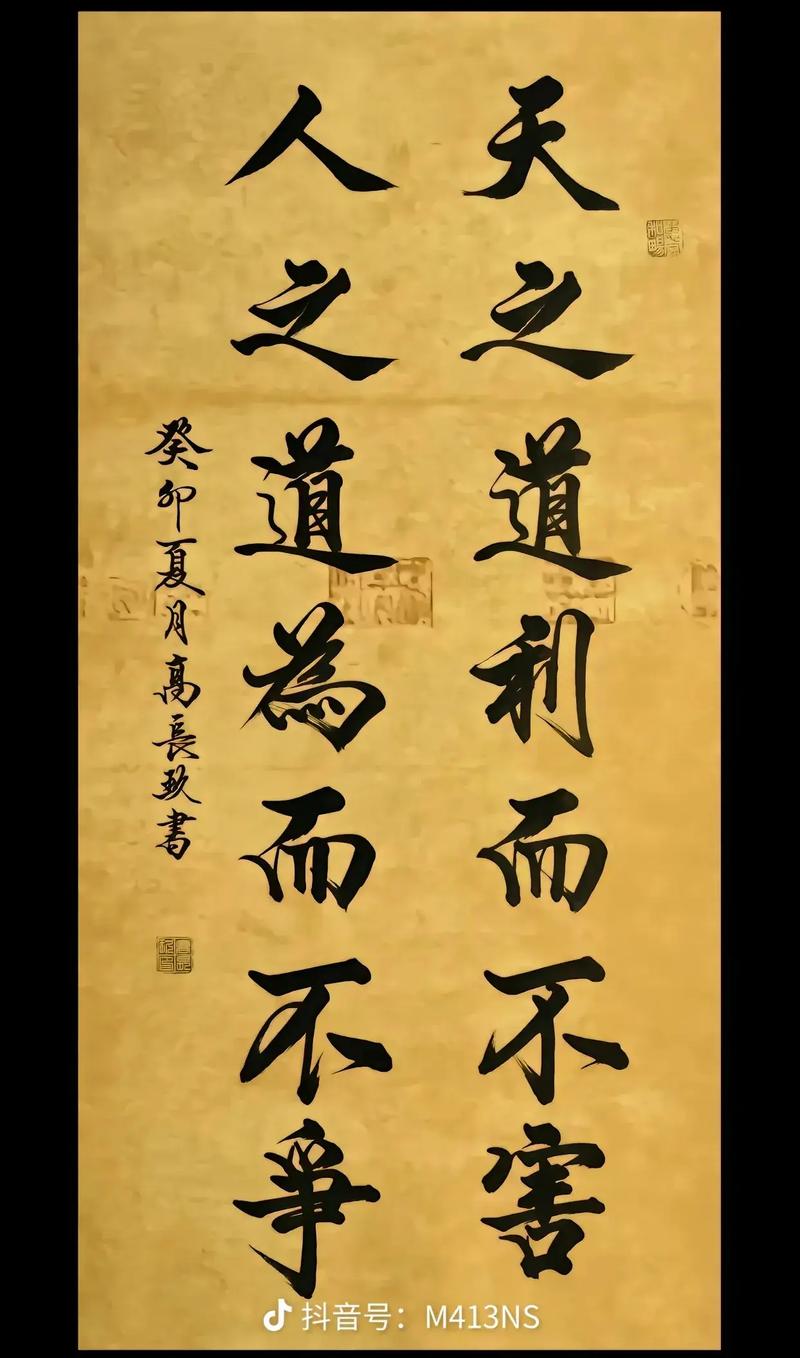 天之道利而不害
人之道為而不爭
癸卯夏月高長玖書
抖音号：M413NS